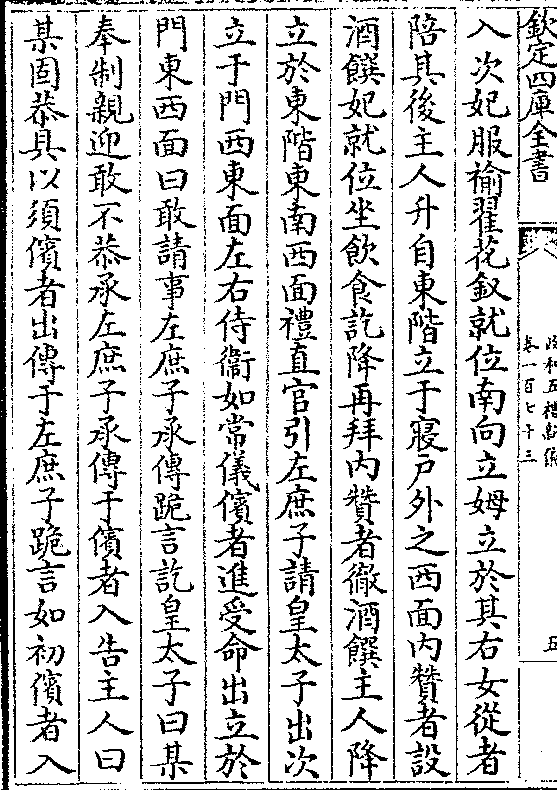 欽定四庫全書
政和五禮新儀
卷一百七十三
五
入次妃服褕翟花釵就位南向立姆立於其右女從者
陪其後主人升自東階立于寢戶外之西面内贊者設
酒饌妃就位坐飲食訖降再拜内贊者徹酒饌主人降
立於東階東南西面禮直官引左庶子請皇太子出次
立于門西東面左右侍衛如常儀儐者進受命出立於
門東西面曰敢請事左庶子承傳跪言訖皇太子曰某
奉制親迎敢不恭承左庶子承傳于儐者入告主人曰
某固恭具以須儐者出傳于左庶子跪言如初儐者入